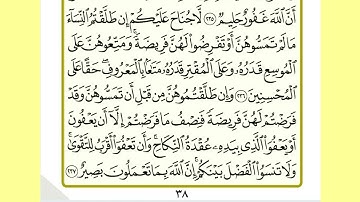 أَنَّ ٱللَّهَ غَفُورٌ حَلِيمٌ ٢٣٥ لَّا جُنَاحَ عَلَيْكُمْ إِن طَلَّقْتُمُ ٱلنِّسَآءَ
مَا لَمْ تَمَسُّوهُنَّ أَوْ تَفْرِضُوا۟ لَهُنَّ فَرِيضَةً ۚ وَمَتِّعُوهُنَّ عَلَى
ٱلْمُوسِعِ قَدَرُهُۥ وَعَلَى ٱلْمُقْتِرِ قَدَرُهُۥ مَتَٰعًۢا بِٱلْمَعْرُوفِ ۖ حَقًّا عَلَى
ٱلْمُحْسِنِينَ ٢٣٦ وَإِن طَلَّقْتُمُوهُنَّ مِن قَبْلِ أَن تَمَسُّوهُنَّ وَقَدْ
فَرَضْتُمْ لَهُنَّ فَرِيضَةً فَنِصْفُ مَا فَرَضْتُمْ إِلَّآ أَن يَعْفُونَ
أَوْ يَعْفُوَا۟ ٱلَّذِى بِيَدِهِۦ عُقْدَةُ ٱلنِّكَاحِ ۚ وَأَن تَعْفُوٓا۟ أَقْرَبُ لِلتَّقْوَىٰ ۚ
وَلَا تَنسَوُا۟ ٱلْفَضْلَ بَيْنَكُمْ ۚ إِنَّ ٱللَّهَ بِمَا تَعْمَلُونَ بَصِيرٌ ٢٣٧
٣٨